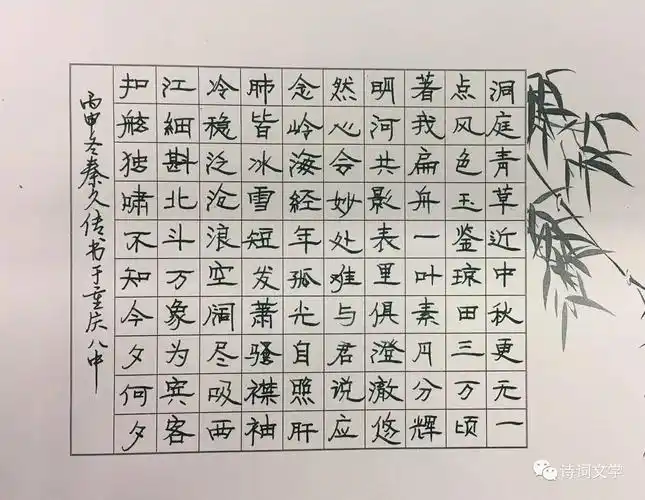 洞庭青草近中秋更无一
点风色玉鉴琼田三万顷
著我扁舟一叶素月分辉
明河共影表里俱澄澈悠
然心会妙处难与君说应
念岭海經年孤光自照肝
肺皆冰雪短发萧骚襟袖
冷稳泛沧浪空阔尽吸西
江細斟北斗万象为宾客
扣舷独啸不知今夕何夕
丙申冬秦久传书于重庆八中
诗词文学